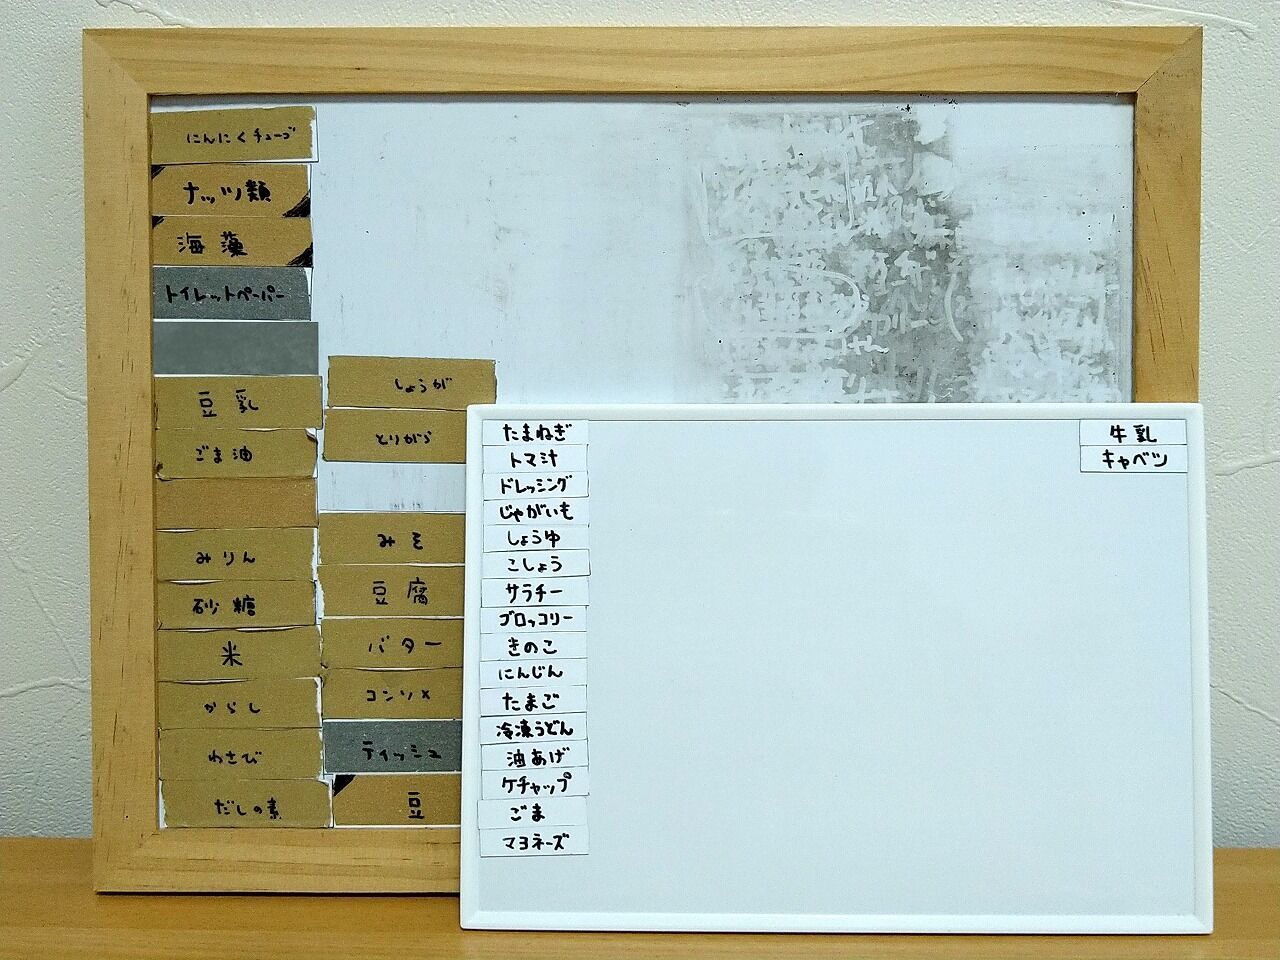 にんにくチューブ
ナッツ類
海藻
トイレットペーパー
豆乳
ごま油
みりん
砂糖
米
からし
わさび
だしの素
しょうが
とりがら
みそ
豆腐
バター
コンソメ
ティッシュ
豆
たまねぎ
トマ汁
ドレッシング
じゃがいも
しょうゆ
こしょう
サラチー
ブロッコリー
きのこ
にんじん
たまご
冷凍うどん
油あげ
ケチャップ
ごま
マヨネーズ
牛乳
キャベツ